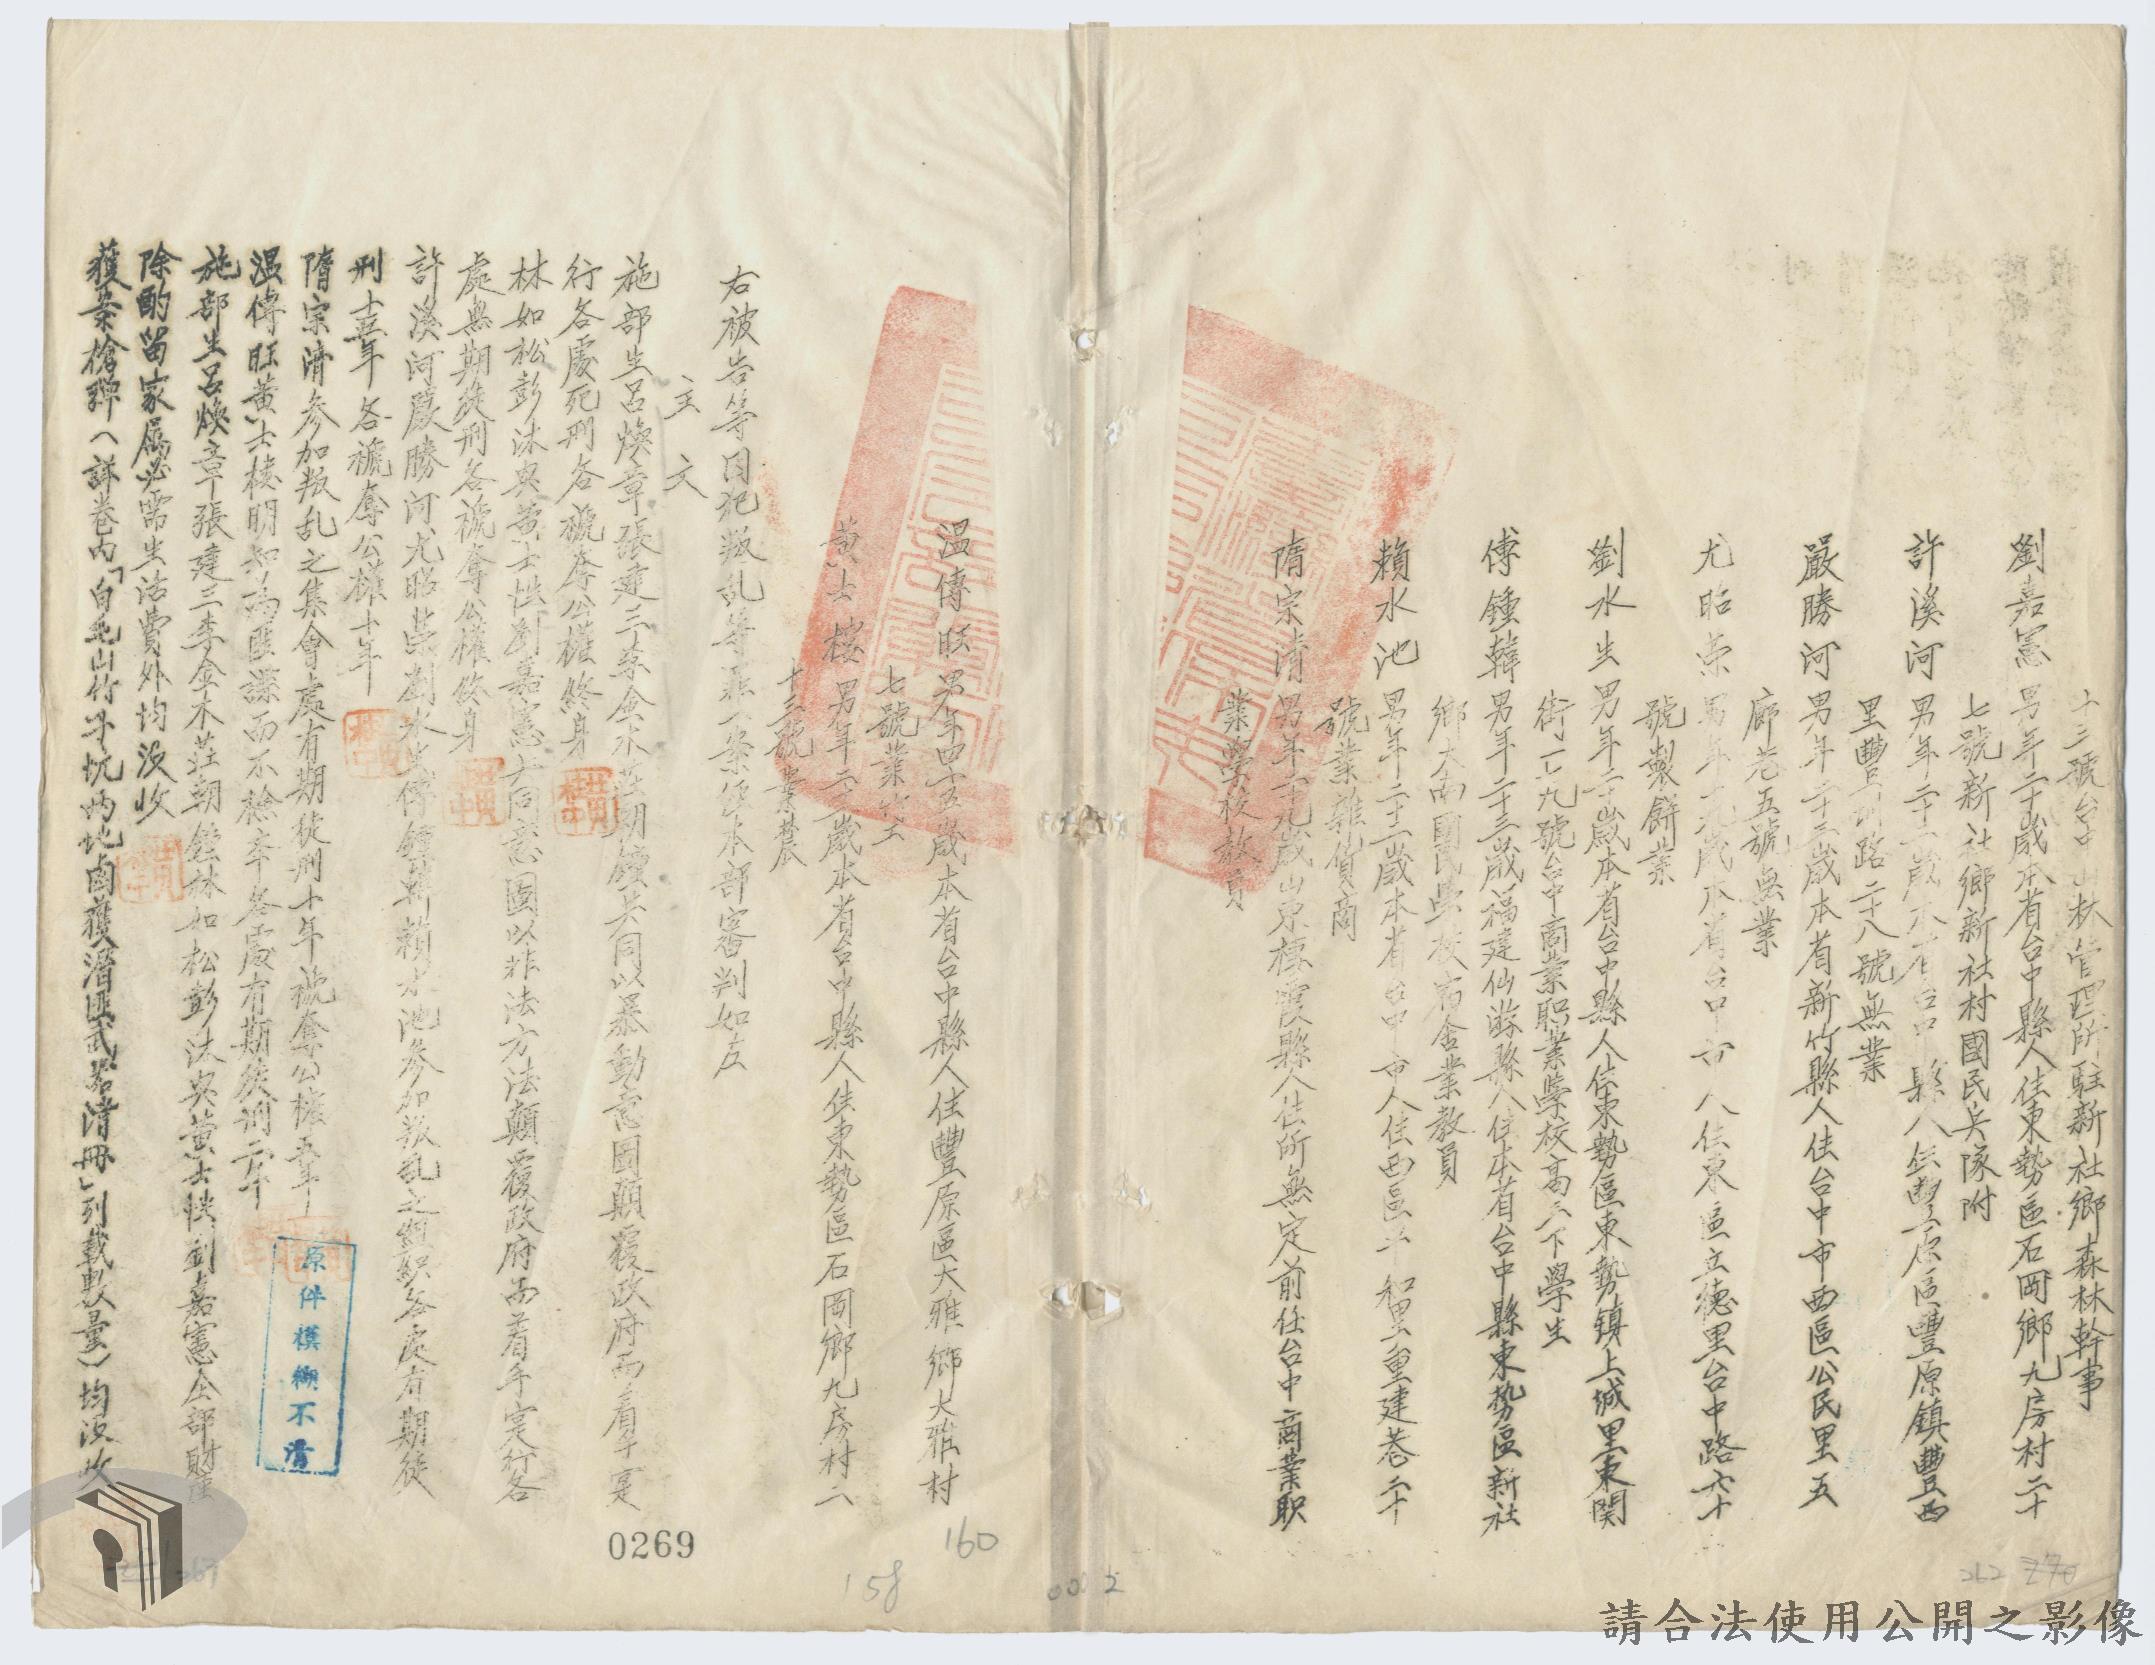 十三號台中山林管理所駐新社鄉森林幹事
劉嘉憲男年二十歲本省台中縣人住東勢區石岡鄉九房村二十
七號新社鄉新社村國民兵隊附
許溪河男年二十一歲本省台中縣人住豐原區豐原鎮豐西
里豐圳路二十八號無業
嚴勝河男年二十三歲本省新竹縣人住台中市西區公民里五
廊巷五號無業
尤昭榮男年十九歲本省台中市人住東區立德里台中路六十
號製餅業
劉水生男年二十歲本省台中縣人住東勢區東勢鎮上城里東関
街一七九號台中商業职業學校高三下學生
傅鍾韓男年二十三歲福建仙游縣人住本省台中縣東势區新社
鄉大南國民學校宿舍業教員
賴水池男年二十二歲本省台中市人住西區平和里重建巷二十
號業雜貨商
隋宗清男年二十九歲山東棲霞縣人住所無定前任台中商業职
業學校教員
温傳旺男年四十五歲本省台中縣人住豐原區大雅鄉大雅村
七號業竹工
黃士樓男年二十三歲本省台中縣人住東勢區石岡鄉九房村二
十三號業農
右被告等因犯叛乱等罪一案經本部審判如左
主文
施部生呂煥章張建三李金木莊朝鐘共同以暴動意图顛覆政府而着手寔
行各處死刑各褫奪公權終身
林如松彭沐興黃士性劉嘉憲共同意圖以非法方法顛覆政府而着手寔行各
處無期徒刑各褫奪公權終身
許溪河嚴勝河尤昭榮劉水生傅鍾韓賴水池参加叛乱之組织各處有期徒
刑十五年各褫奪公權十年
隋宗清参加叛乱之集會處有期徒刑十年褫奪公權五年
温傳旺黃士樓明知為匪諜而不檢舉各處有期徒刑二年
施部生呂煥章張建三李金木莊朝鐘林如松彭沐興黃士性劉嘉憲全部財產
除酌留家屬必需生活費外均没收
獲案槍弹(詳卷内「白毛山竹子坑两地鹵獲潛匪武器清冊」列載數量)均没收
原件模糊不清
0269
160
158
0002
262 270
263
請合法使用公開之影像